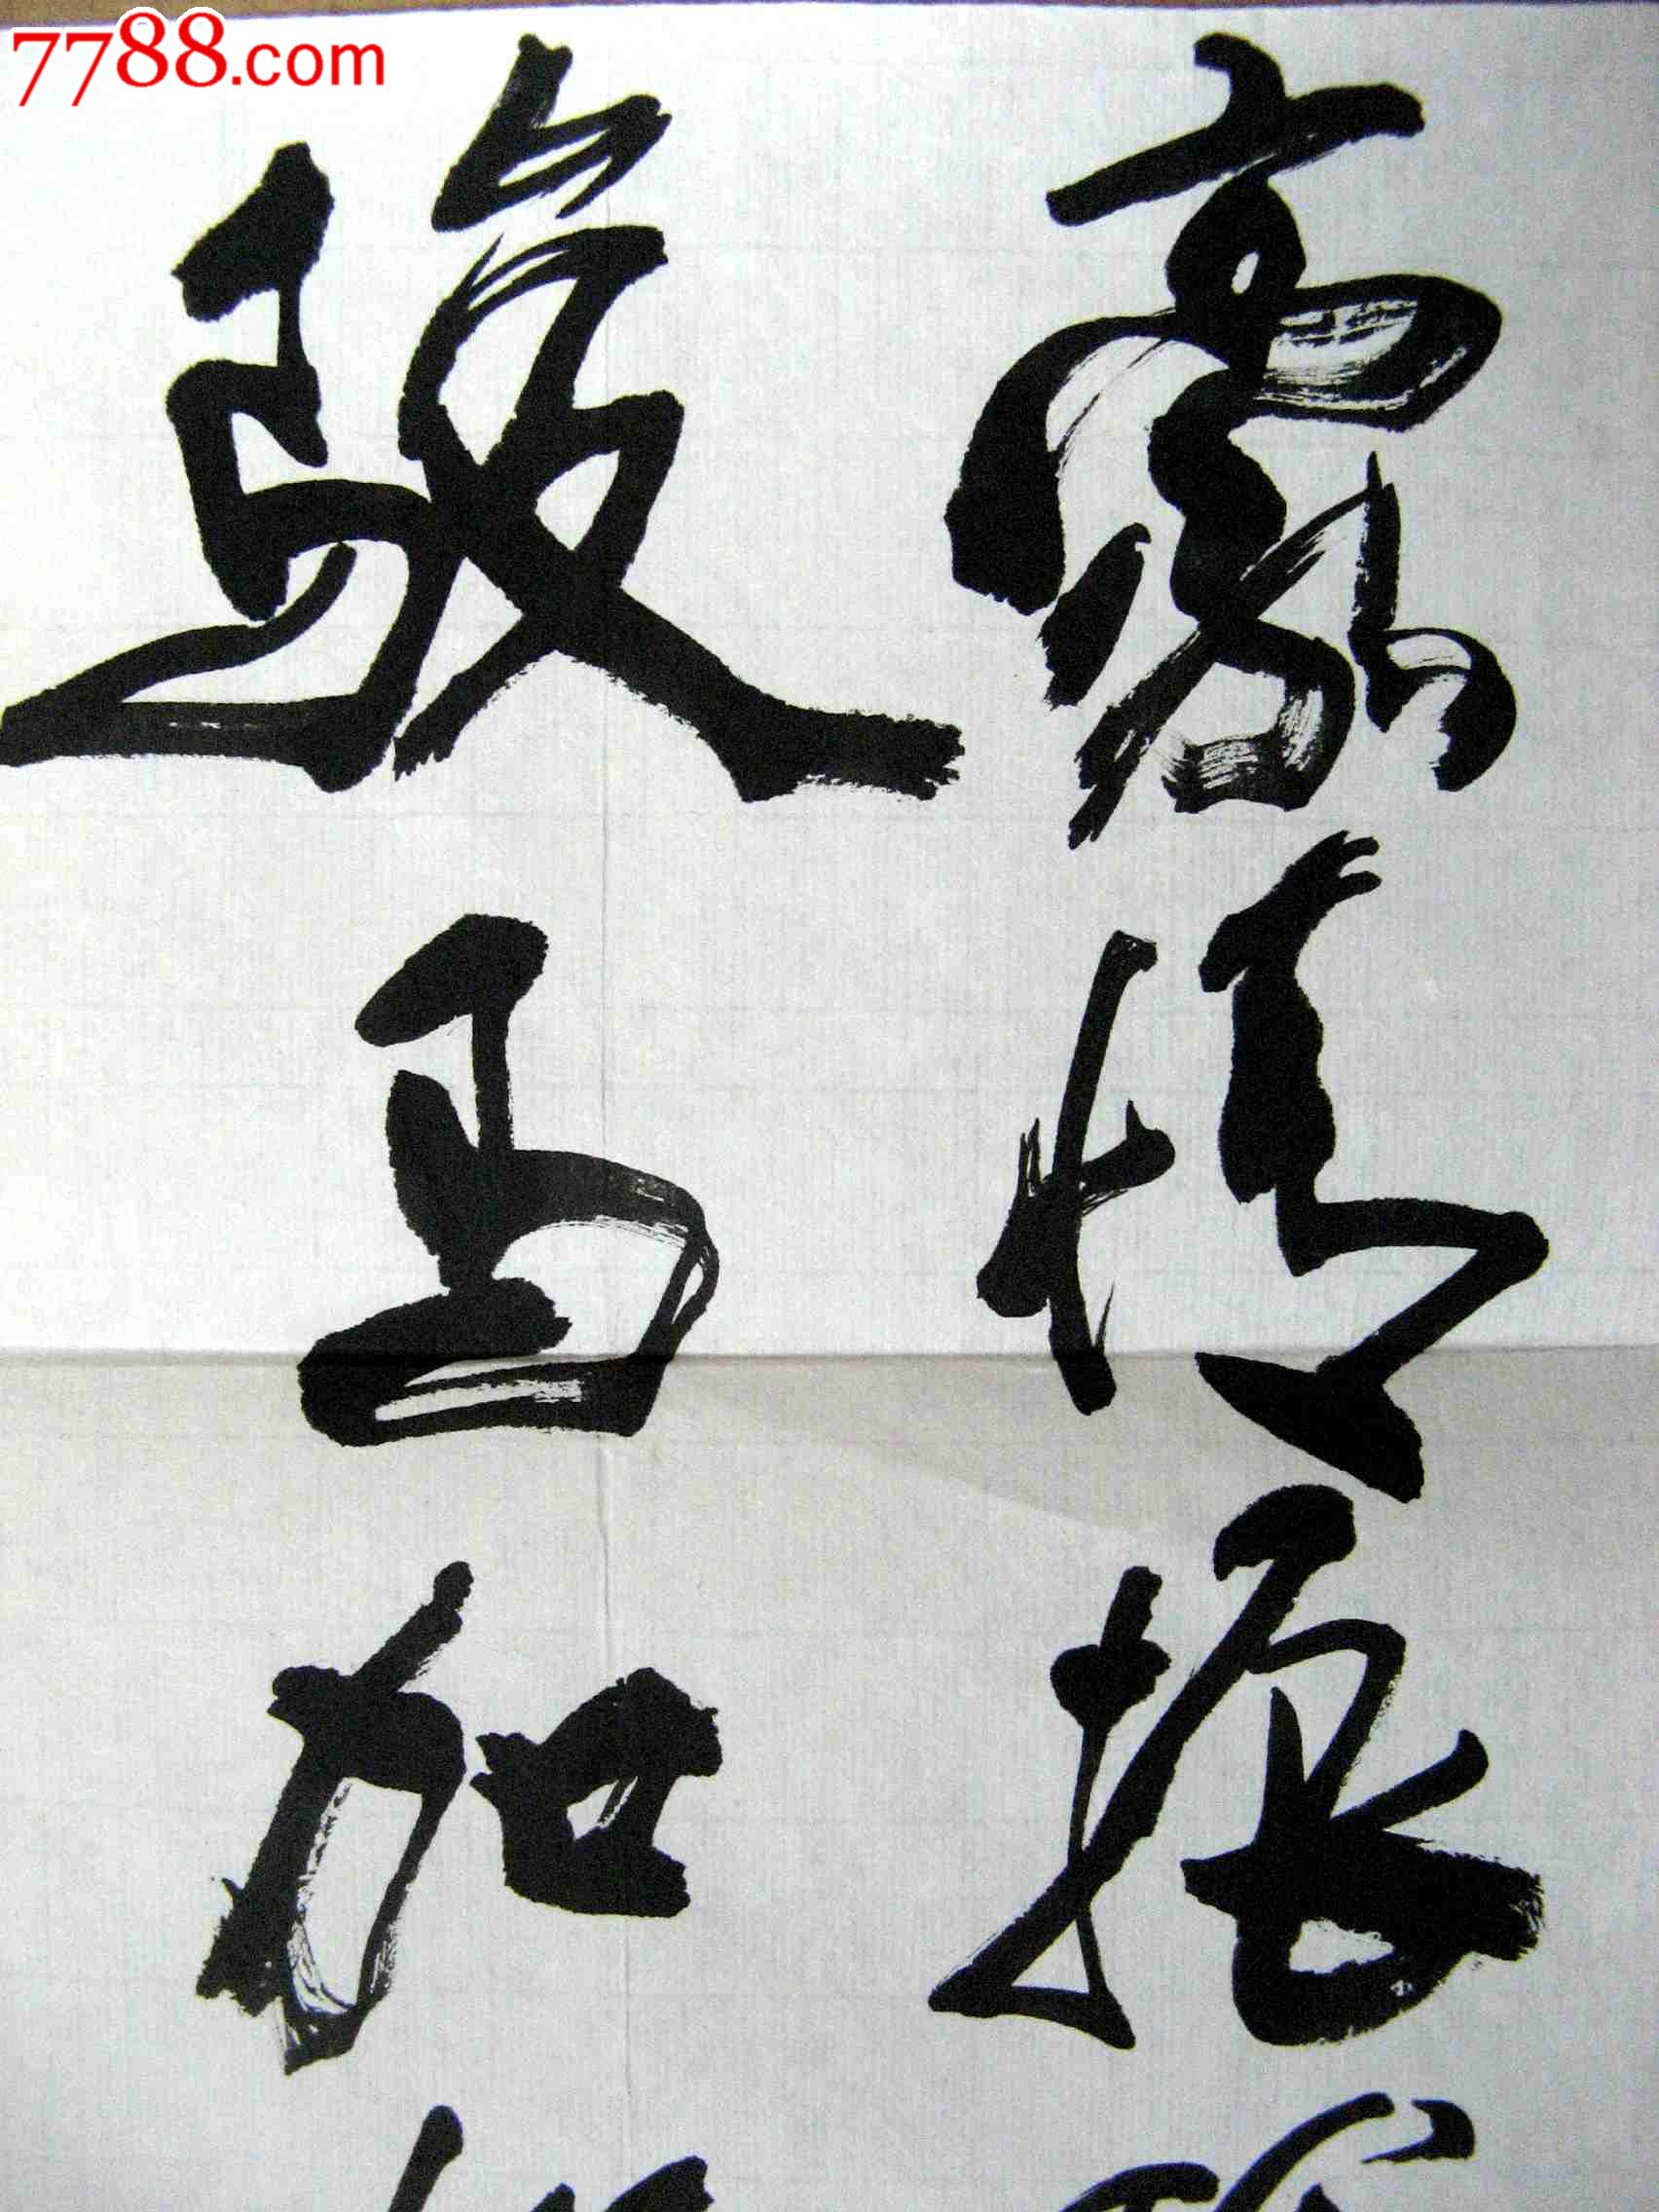 7788.com
豪情振
骏马加